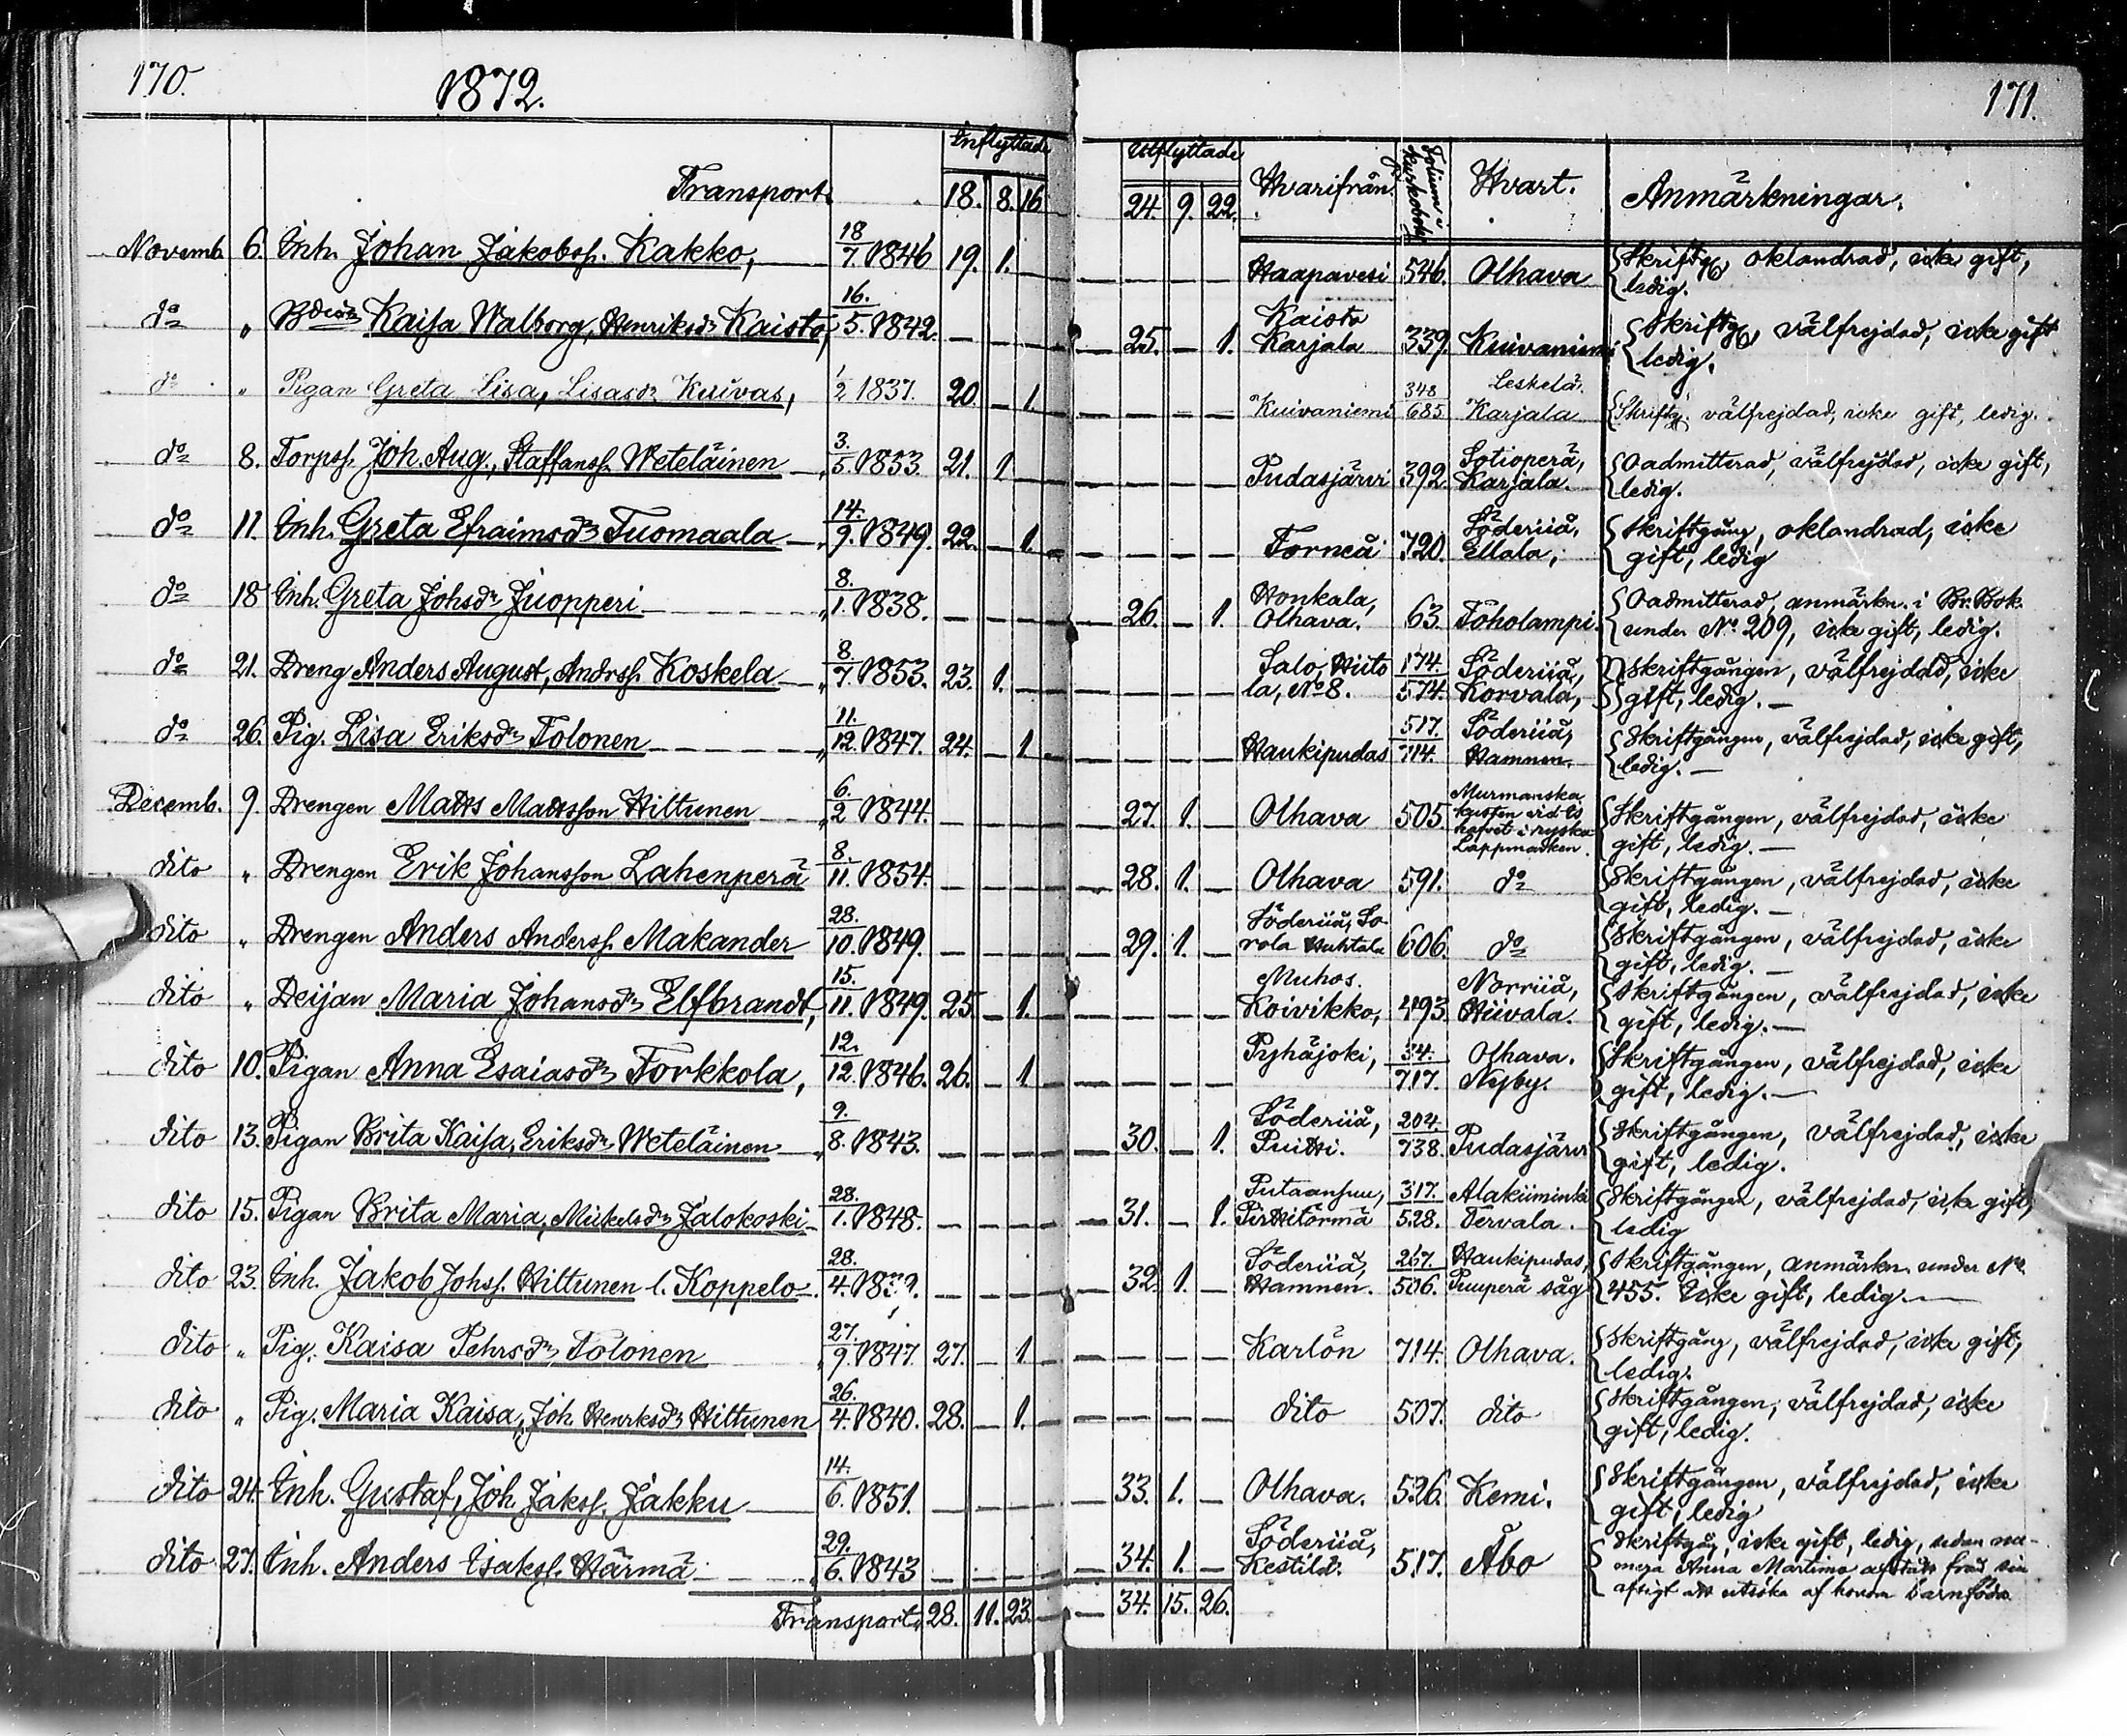 170.
1872.
Inflyttade
Transport. 18. 8. 16
Novemb. 6. Inh. Johan Jakobss. Kakko, 18/7. 1846 19. 1.
do " Bdtr Kaisa Walborg, Henriksdr Kaisto, 16./5. 1842.
do " Pigan Greta Lisa, Lisasdr Kuivas, 1/2 1837. 20. 1.
do 8. Torpss. Joh. Aug., Staffanss. Weteläinen 3./5. 1853. 21. 1
do 11. Inh. Greta Efraimsdr Tuomaala 14./9. 1849. 22. 1.
do 18 Inh. Greta Johsdr Juopperi 8./1. 1838.
do 21. Dreng Anders August, Andrss. Koskela 8./7. 1853. 23. 1.
do 26. Pig. Lisa Eriksdr Tolonen 11./12. 1847. 24. 1
Decemb. 9. Drengen Matts Mattsson Hiltunen 6./2 1844.
dito " Drengen Erik Johansson Lahenperä 8./11. 1854.
dito " Drengen Anders Anderss. Makander 28./10. 1849.
dito " Deijan Maria Johansdr Elfbrandt, 15./11. 1849. 25. 1.
dito 10. Pigan Anna Esaiasdr Torkkola, 12./12. 1846. 26. 1
dito 13. Pigan Brita Kaisa, Eriksdr Weteläinen 9./8. 1843.
dito 15. Pigan Brita Maria, Mickelsdr Jalokoski 28./1. 1848.
dito 23. Inh. Jakob Johss. Hiltunen l. Koppelo 28./4.
dito " Pig. Kaisa Pehrsdr Tolonen 27./9. 1847. 27. 1.
dito " Pig. Maria Kaisa, Joh Henrksdr Hiltunen 26./4. 1840. 28. 1.
dito 24. Inh. Gustaf, Joh. Jakss. Jakku 14./6. 1851.
dito 27. Inh. Anders Isakss. Härmä 29./6. 1843
Transport. 28. 11. 23.
171.
Utflyttade
24. 9. 22. Hvarifrån. Folium i Kyrkoboken Hvart. Anmärkningar.
Haapavesi 546. Olhava Skriftg, oklandrad, icke gift,
ledig.
25. 1. Kaisto
Karjala 339. Kuivaniemi Skriftg, välfrejdad, icke gift
ledig.
Kuivaniemi 348/685 Leskelä.
Karjala Skriftg. välfrejdad, icke gift, ledig.
Pudasjärvi 392. Sotioperä,
Karjala. Oadmitterad, välfrejdad, icke gift,
ledig.
Torneå 720. Söderiiå,
Ellala, Skriftgång, oklandrad, icke
gift, ledig
26. 1. Honkala,
Olhava. 63. Toholampi. Oadmitterad, anmärkn. i Br. Bok.
under No 209, icke gift, ledig.
Salo, Hiito
la, No 8. 174./574. Söderiiå,
Korvala, Skriftgången, välfrejdad, icke
gift, ledig.
Haukipudas 517./714. Söderiiå,
Hamnen. Skriftgången, välfrejdad, icke gift,
ledig.
27. 1. Olhava 505. Murmanska
kusten vid Is
hafvet i ryska
Lappmarken. Skriftgången, välfrejdad, icke
gift, ledig.
28. 1. Olhava 591. do Skriftgången, välfrejdad, icke
gift, ledig.
29. 1. Söderiiå, So-
rola Huhtala 606. do Skriftgången, välfrejdad, icke
gift, ledig.
Muhos.
Koivikko, 493. Norriiå,
Hiivala. Skriftgången, välfrejdad, icke
gift, ledig.
Pyhäjoki, 34./717. Olhava.
Nyby. Skriftgången, välfrejdad, icke
gift, ledig.
30. 1. Söderiiå,
Puitti. 204./738. Pudasjärvi Skriftgången, välfrejdad, icke
gift, ledig.
31. 1. Putaansuu,
Pirttitörmä 317./528. Alakiiminki
Tervala. Skriftgången, välfrejdad, icke gift,
ledig
32. 1. Söderiiå,
Hamnen. 267./506. Haukipudas,
Puuperä såg Skriftgången, anmärkn. under No.
455. Icke gift, ledig.
Karlön 714. Olhava. Skriftgång, välfrejdad, icke gift,
ledig.
dito 507. dito Skriftgången, välfrejdad, icke
gift, ledig.
33. 1. Olhava. 526. Kemi. Skriftgången, välfrejdad, icke
gift, ledig
34. 1. Söderiiå,
Kestilä. 517. Åbo Skriftgån, icke gift, ledig, sedan
Anna Martimo afstått från sin
afsigt att utsöka af honom barnföda
34. 15. 26.